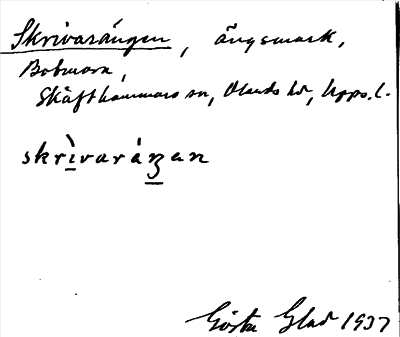 Skrivarängen, ängsmark,
Bobmora,
Skäfthammars sn, Olands hd, Upps. l.
skrìvaráŋan
Gösta Glad 1937